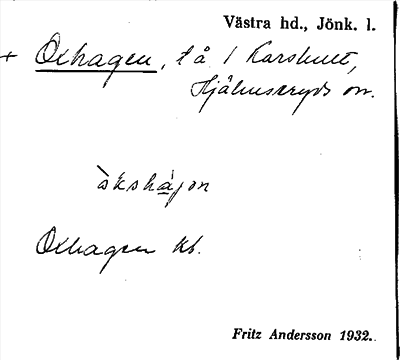 Västra hd., Jönk. l.
+ Oxhagen, tå / Karshult,
Hjälmseryds sn.
àkshàjon
Oxhagen kb.
Fritz Andersson 1932.